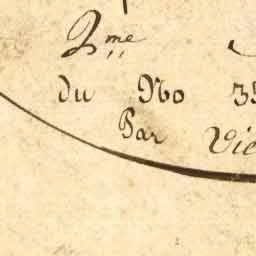 2me
du No 35
Par Vic